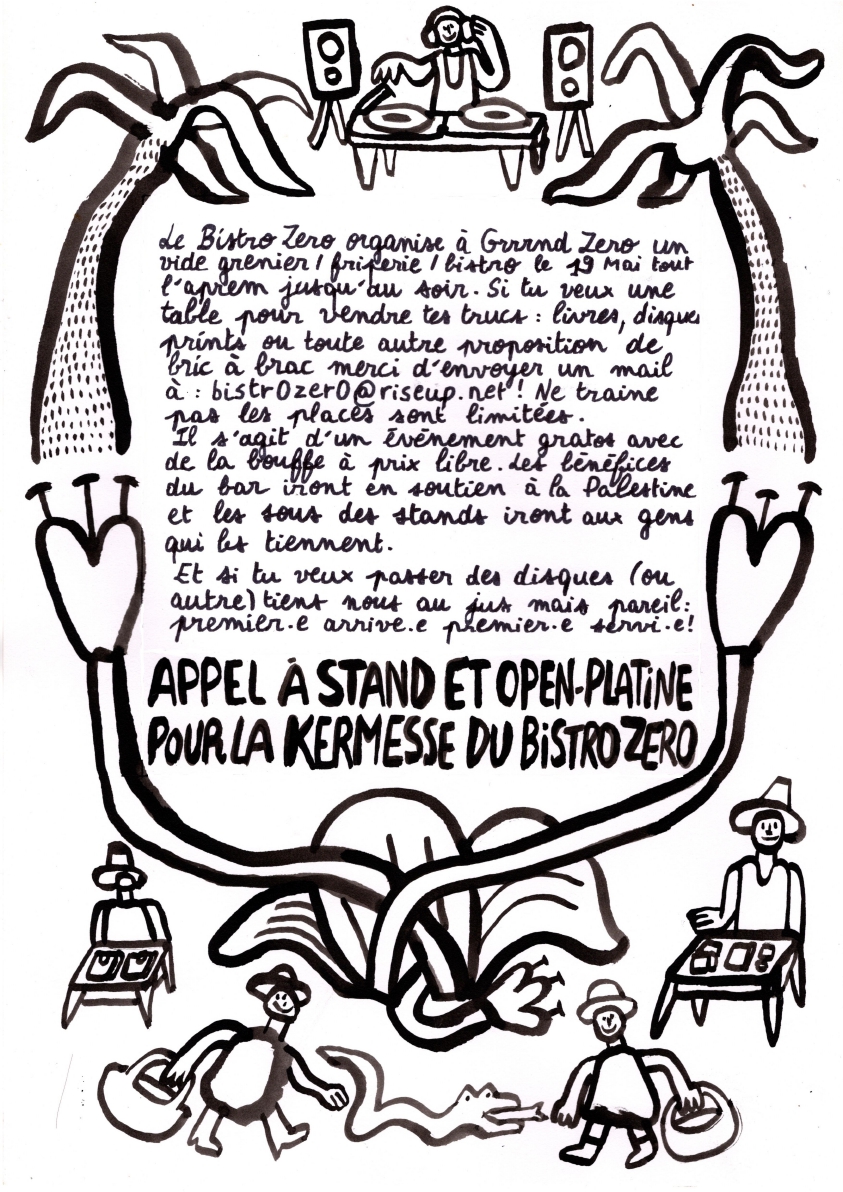 Le Bistro Zero organise à Grrrnd Zero un
vide grenier / friperie / bistro le 19 Mai tout
l'aprem jusqu'au soir. Si tu veux une
table pour vendre tes trucs : livres, disques
prints ou toute autre proposition de
bric à brac merci d'envoyer un mail
à : bistr0zer0@riseup.net ! Ne traine
pas les places sont limitées.
Il s'agit d'un événement gratos avec
de la bouffe à prix libre. Les bénéfices
du bar iront en soutien à la Palestine
et les sous des stands iront aux gens
qui les tiennent.
Et si tu veux passer des disques (ou
autre) tiens nous au jus mais pareil :
premier.e arrivé.e premier.e servi.e !
APPEL À STAND ET OPEN-PLATINE
POUR LA KERMESSE DU BISTRO ZERO